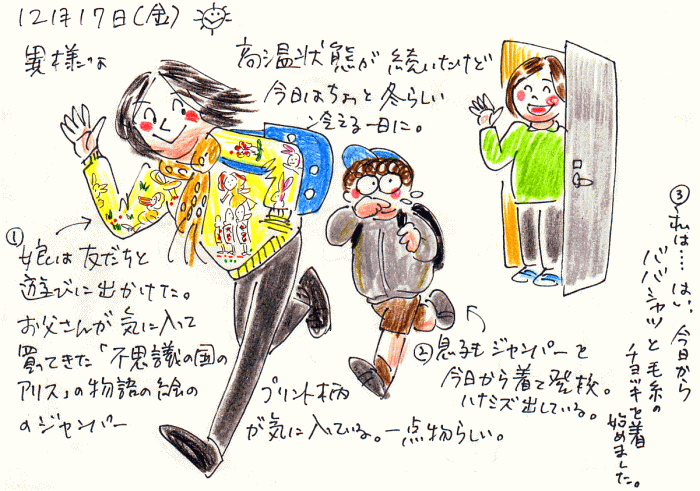 12月17日(金)
異様な
高温状態が続いたけど
今日はちょっと冬らしい
冷える一日に。
①
娘は友だちと
遊びに出かけた。
お父さんが気に入って
買ってきた「不思議の国の
アリス」の物語の絵の
のジャンパー
プリント柄
が気に入っている。一点物らしい。
②息子もジャンパーを
今日から着て登校。
ハナミズ出している。
③私は……はい、今日から
ババシャツと毛糸の
チョッキを着
始めました。